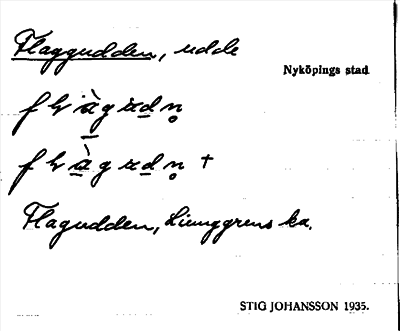 Flaggudden, udde
Nyköpings stad
Flagudden, Ljunggrens ka.
STIG JOHANSSON 1935.